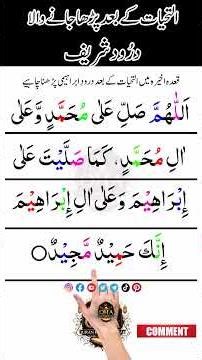 التحیات کے بعد پڑھا جانے والا
درُود شریف
قعدہ اخیرہ میں التحیات کے بعد درود ابراہیمی پڑھنا چاہیے
اَللّٰهُمَّ صَلِّ عَلٰى مُحَمَّدٍ وَّعَلٰى
اٰلِ مُحَمَّدٍ، كَمَا صَلَّيْتَ عَلٰى
اِبْرَاهِيْمَ وَعَلٰى اٰلِ اِبْرَاهِيْمَ
اِنَّكَ حَمِيْدٌ مَّجِيْدٌ○
COMMENT